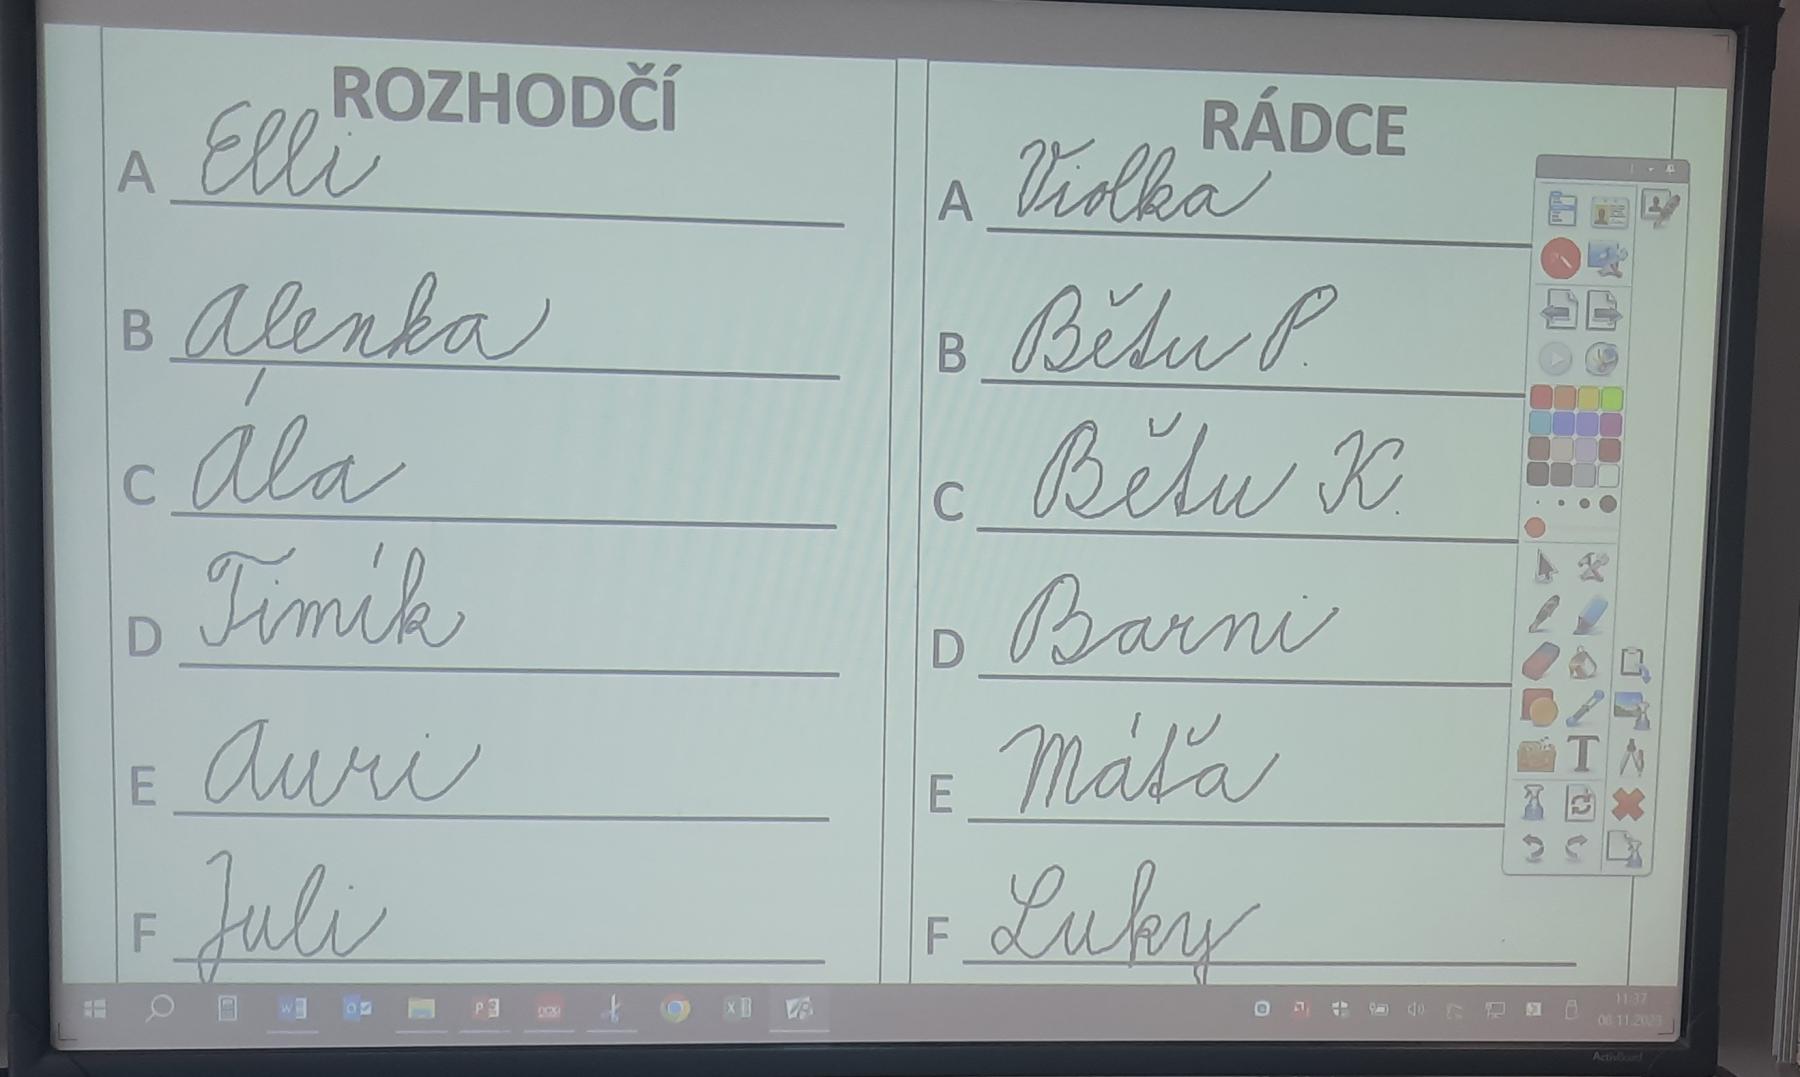 ROZHODČÍ
A Elli
B Alenka
C Ála
D Timík
E Auri
F Juli
RÁDCE
A Violka
B Bětu P.
C Bětu K.
D Barni
E Máťa
F Luky
T
11:37
06.11.2023
ActivBoard